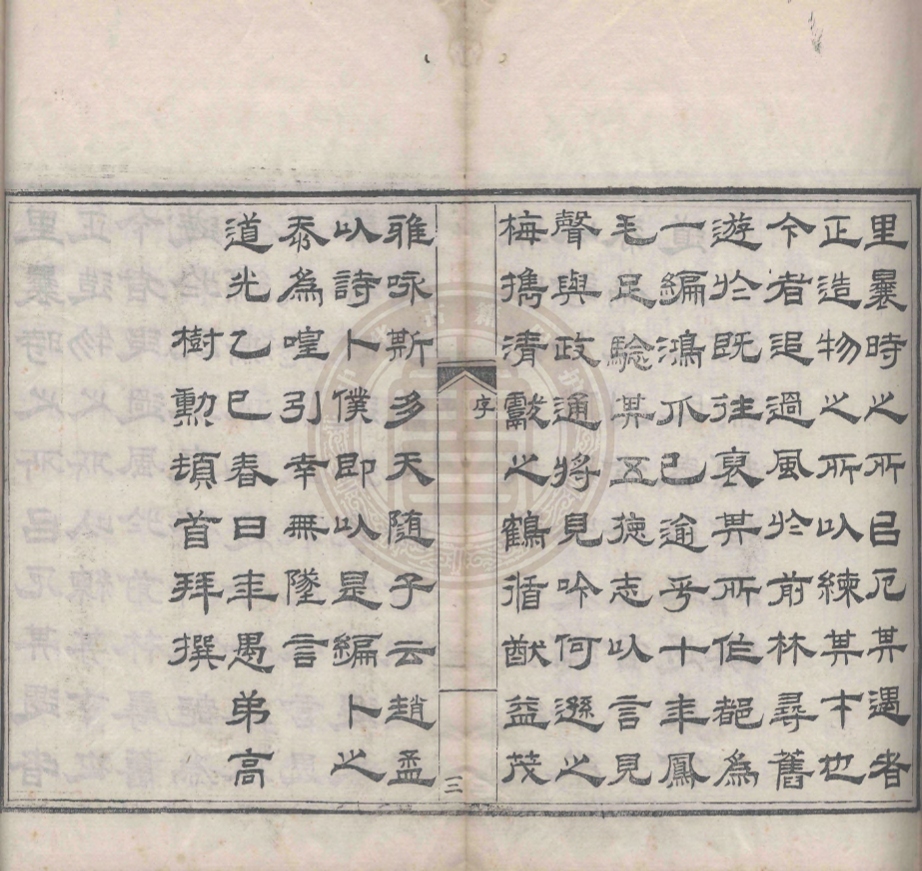 里曩時之所㠯厄其遇者
正造物之所以練其才也
今者追過風於前林尋舊
遊於既往裒其所作都為
一編鴻爪已逾乎十年鳳
毛足驗其五德志以言見
聲與政通將見吟何遜之
梅擕清獻之鶴循猷益茂
序
三
雅咏斯多天随子云趙孟
以詩卜僕即以是編卜之
忝為喤引幸無墜言
道光乙巳春日年愚弟高
樹勳頓首拜撰